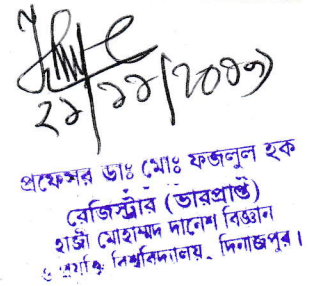 প্রফেসর ডাঃ মোঃ ফজলুল হক
রেজিস্ট্রার (ভারপ্রাপ্ত)
হাজী মোহাম্মদ দানেশ বিজ্ঞান
ও প্রযুক্তি বিশ্ববিদ্যালয়, দিনাজপুর।